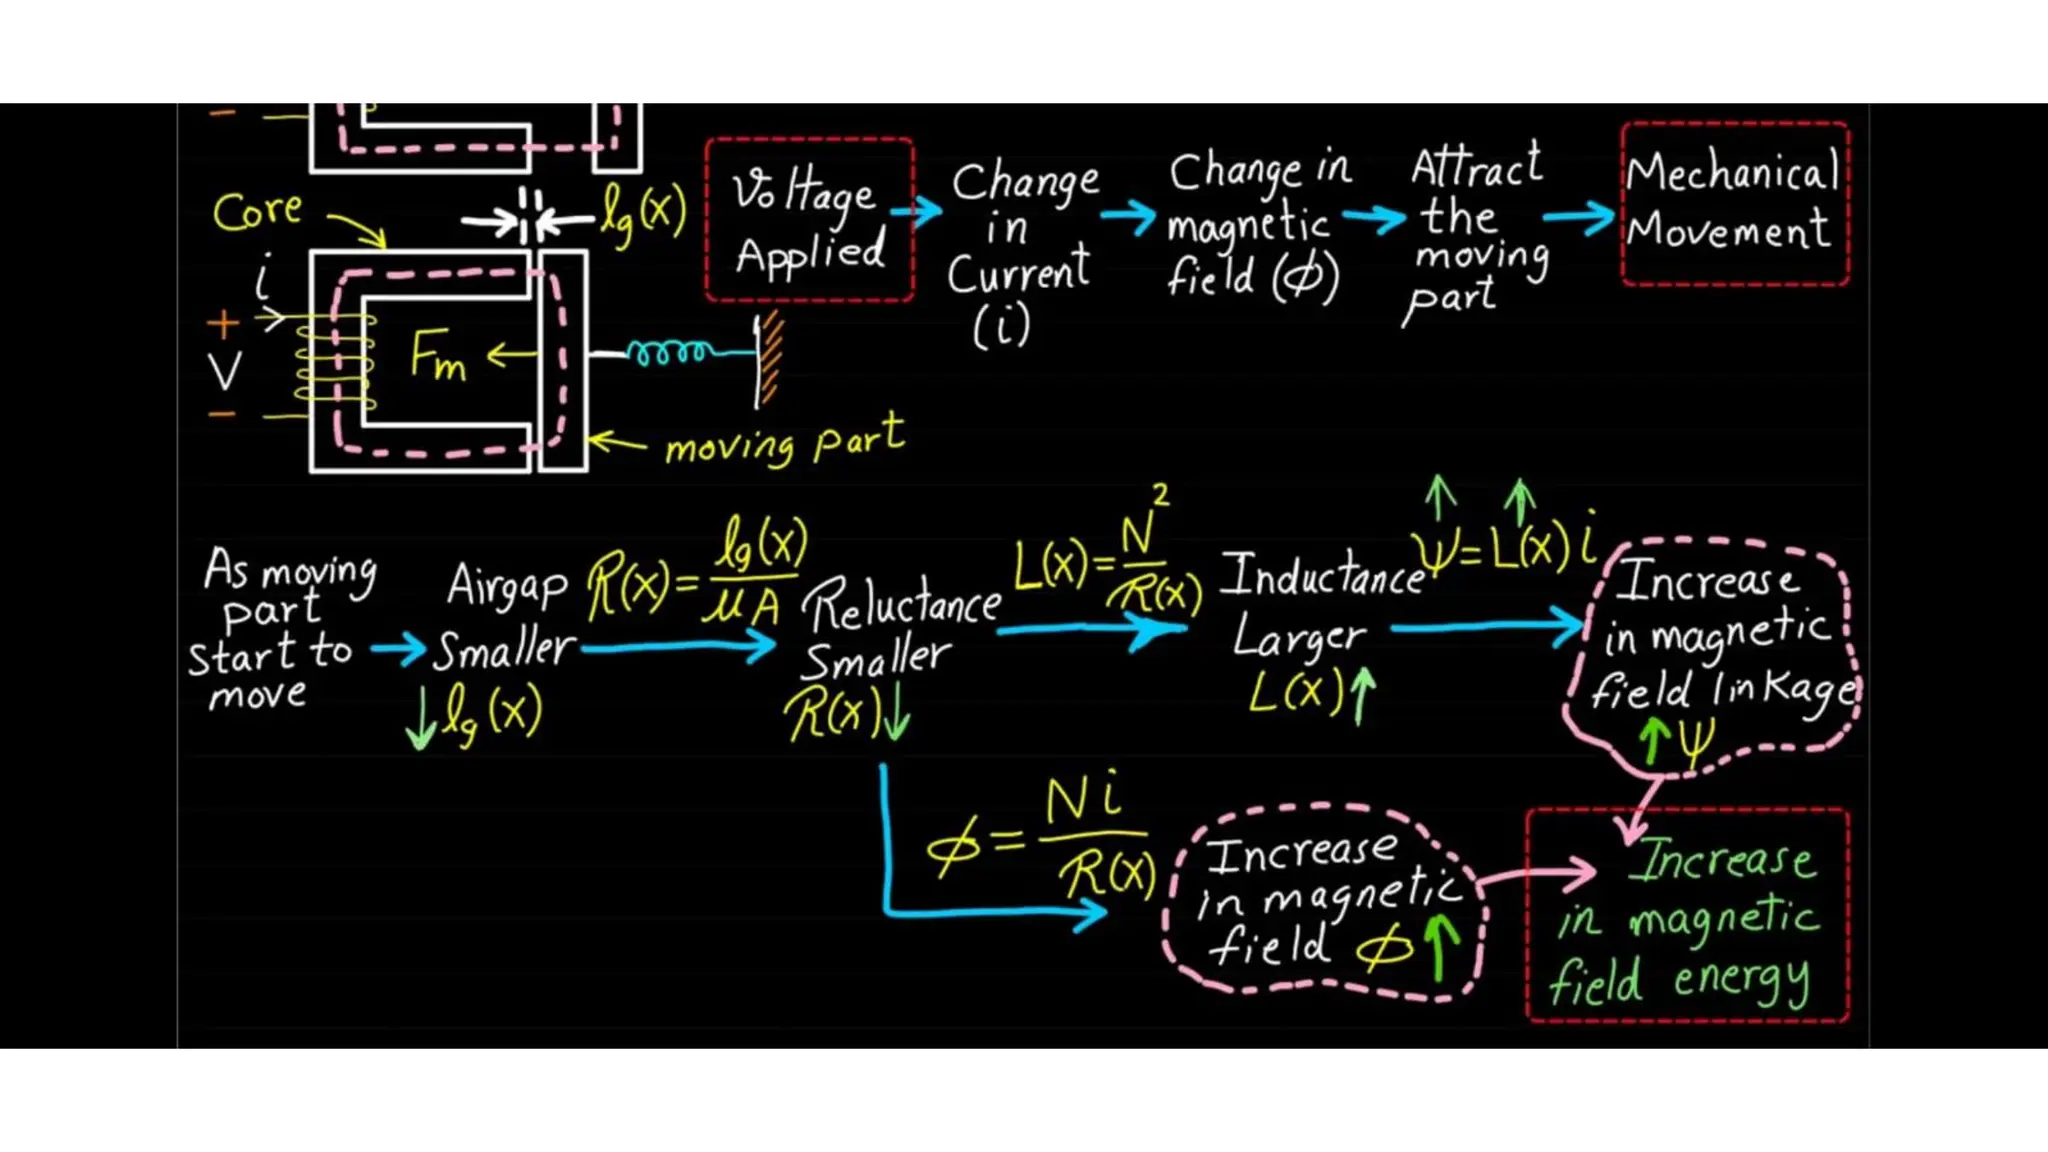 −
Core
lg(x)
i
+
V
−
Fm
moving part
Voltage
Applied
Change
in
Current
(i)
Change in
magnetic
field (ϕ)
Attract
the
moving
part
Mechanical
Movement
As moving
part
start to
move
Airgap
Smaller
↓ lg(x)
R(x) = lg(x) / μA
Reluctance
Smaller
R(x)↓
L(x) = N² / R(x)
Inductance
Larger
L(x)↑
↑ ↑
Ψ = L(x) i
Increase
in magnetic
field linkage
↑ Ψ
ϕ = Ni / R(x)
Increase
in magnetic
field ϕ↑
Increase
in magnetic
field energy